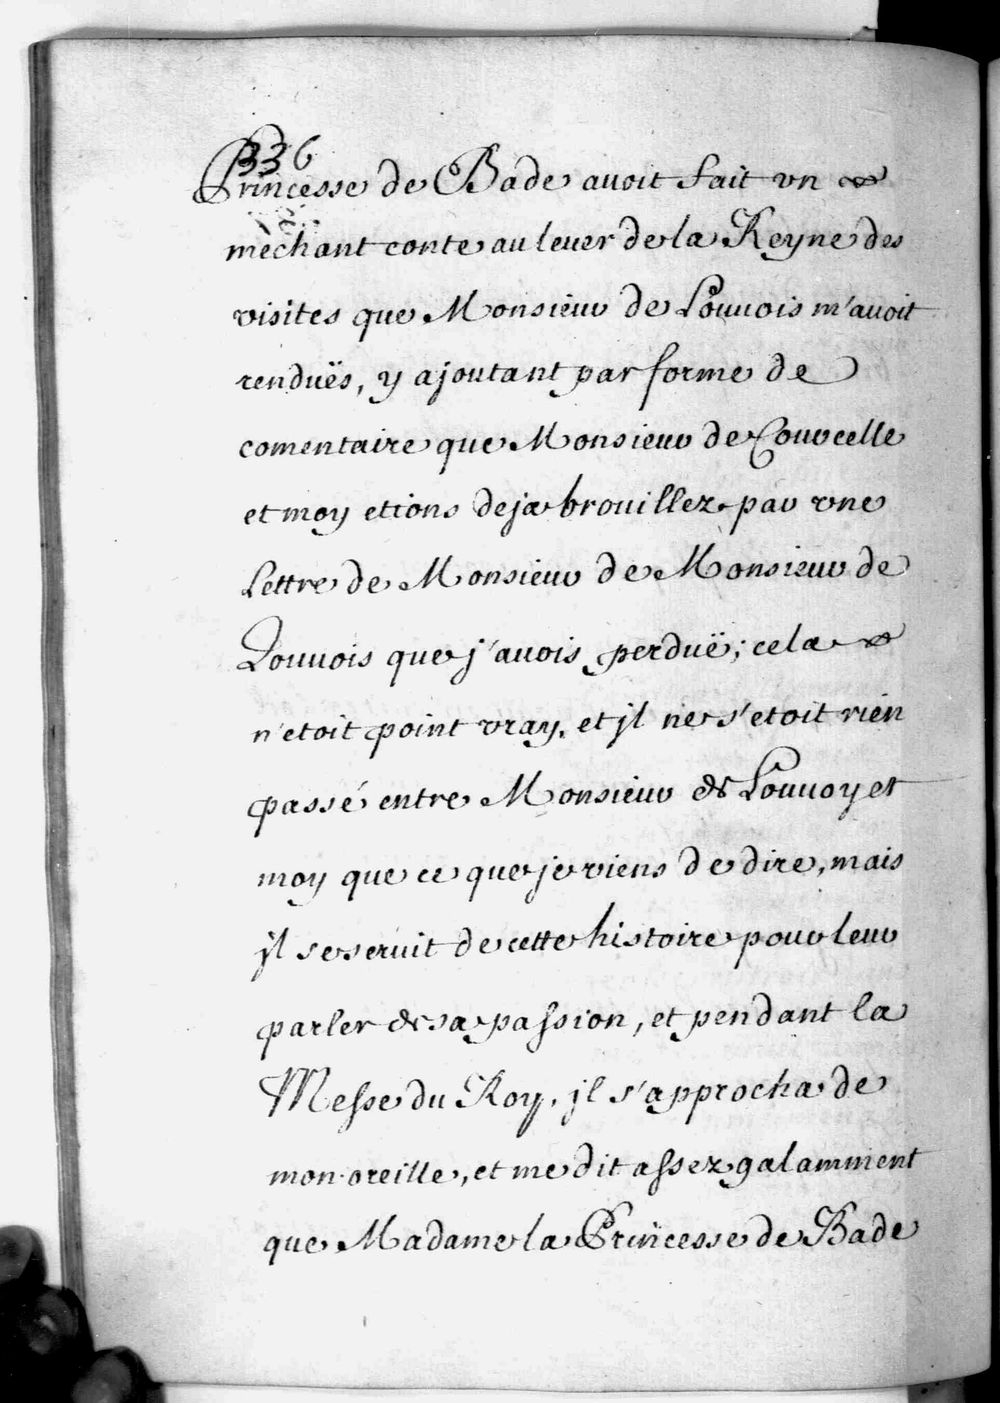 336
Princesse de Bade auoit fait vn
mechant conte au leuer de la Reyne des
visites que Monsieur de Louuois m'auoit
renduës, y ajoutant par forme de
comentaire que Monsieur de Courcelle
et moy etions deja brouillez par vne
Lettre de Monsieur de Monsieur de
Louuois que j'auois perduë; cela
n'etoit point vray, et jl ne s'etoit rien
passé entre Monsieur de Louuoy et
moy que ce que je viens de dire, mais
jl se seruit de cette histoire pour leur
parler de sa passion, et pendant la
Messe du Roy, jl s'approcha de
mon oreille, et me dit assez galamment
que Madame la Princesse de Bade